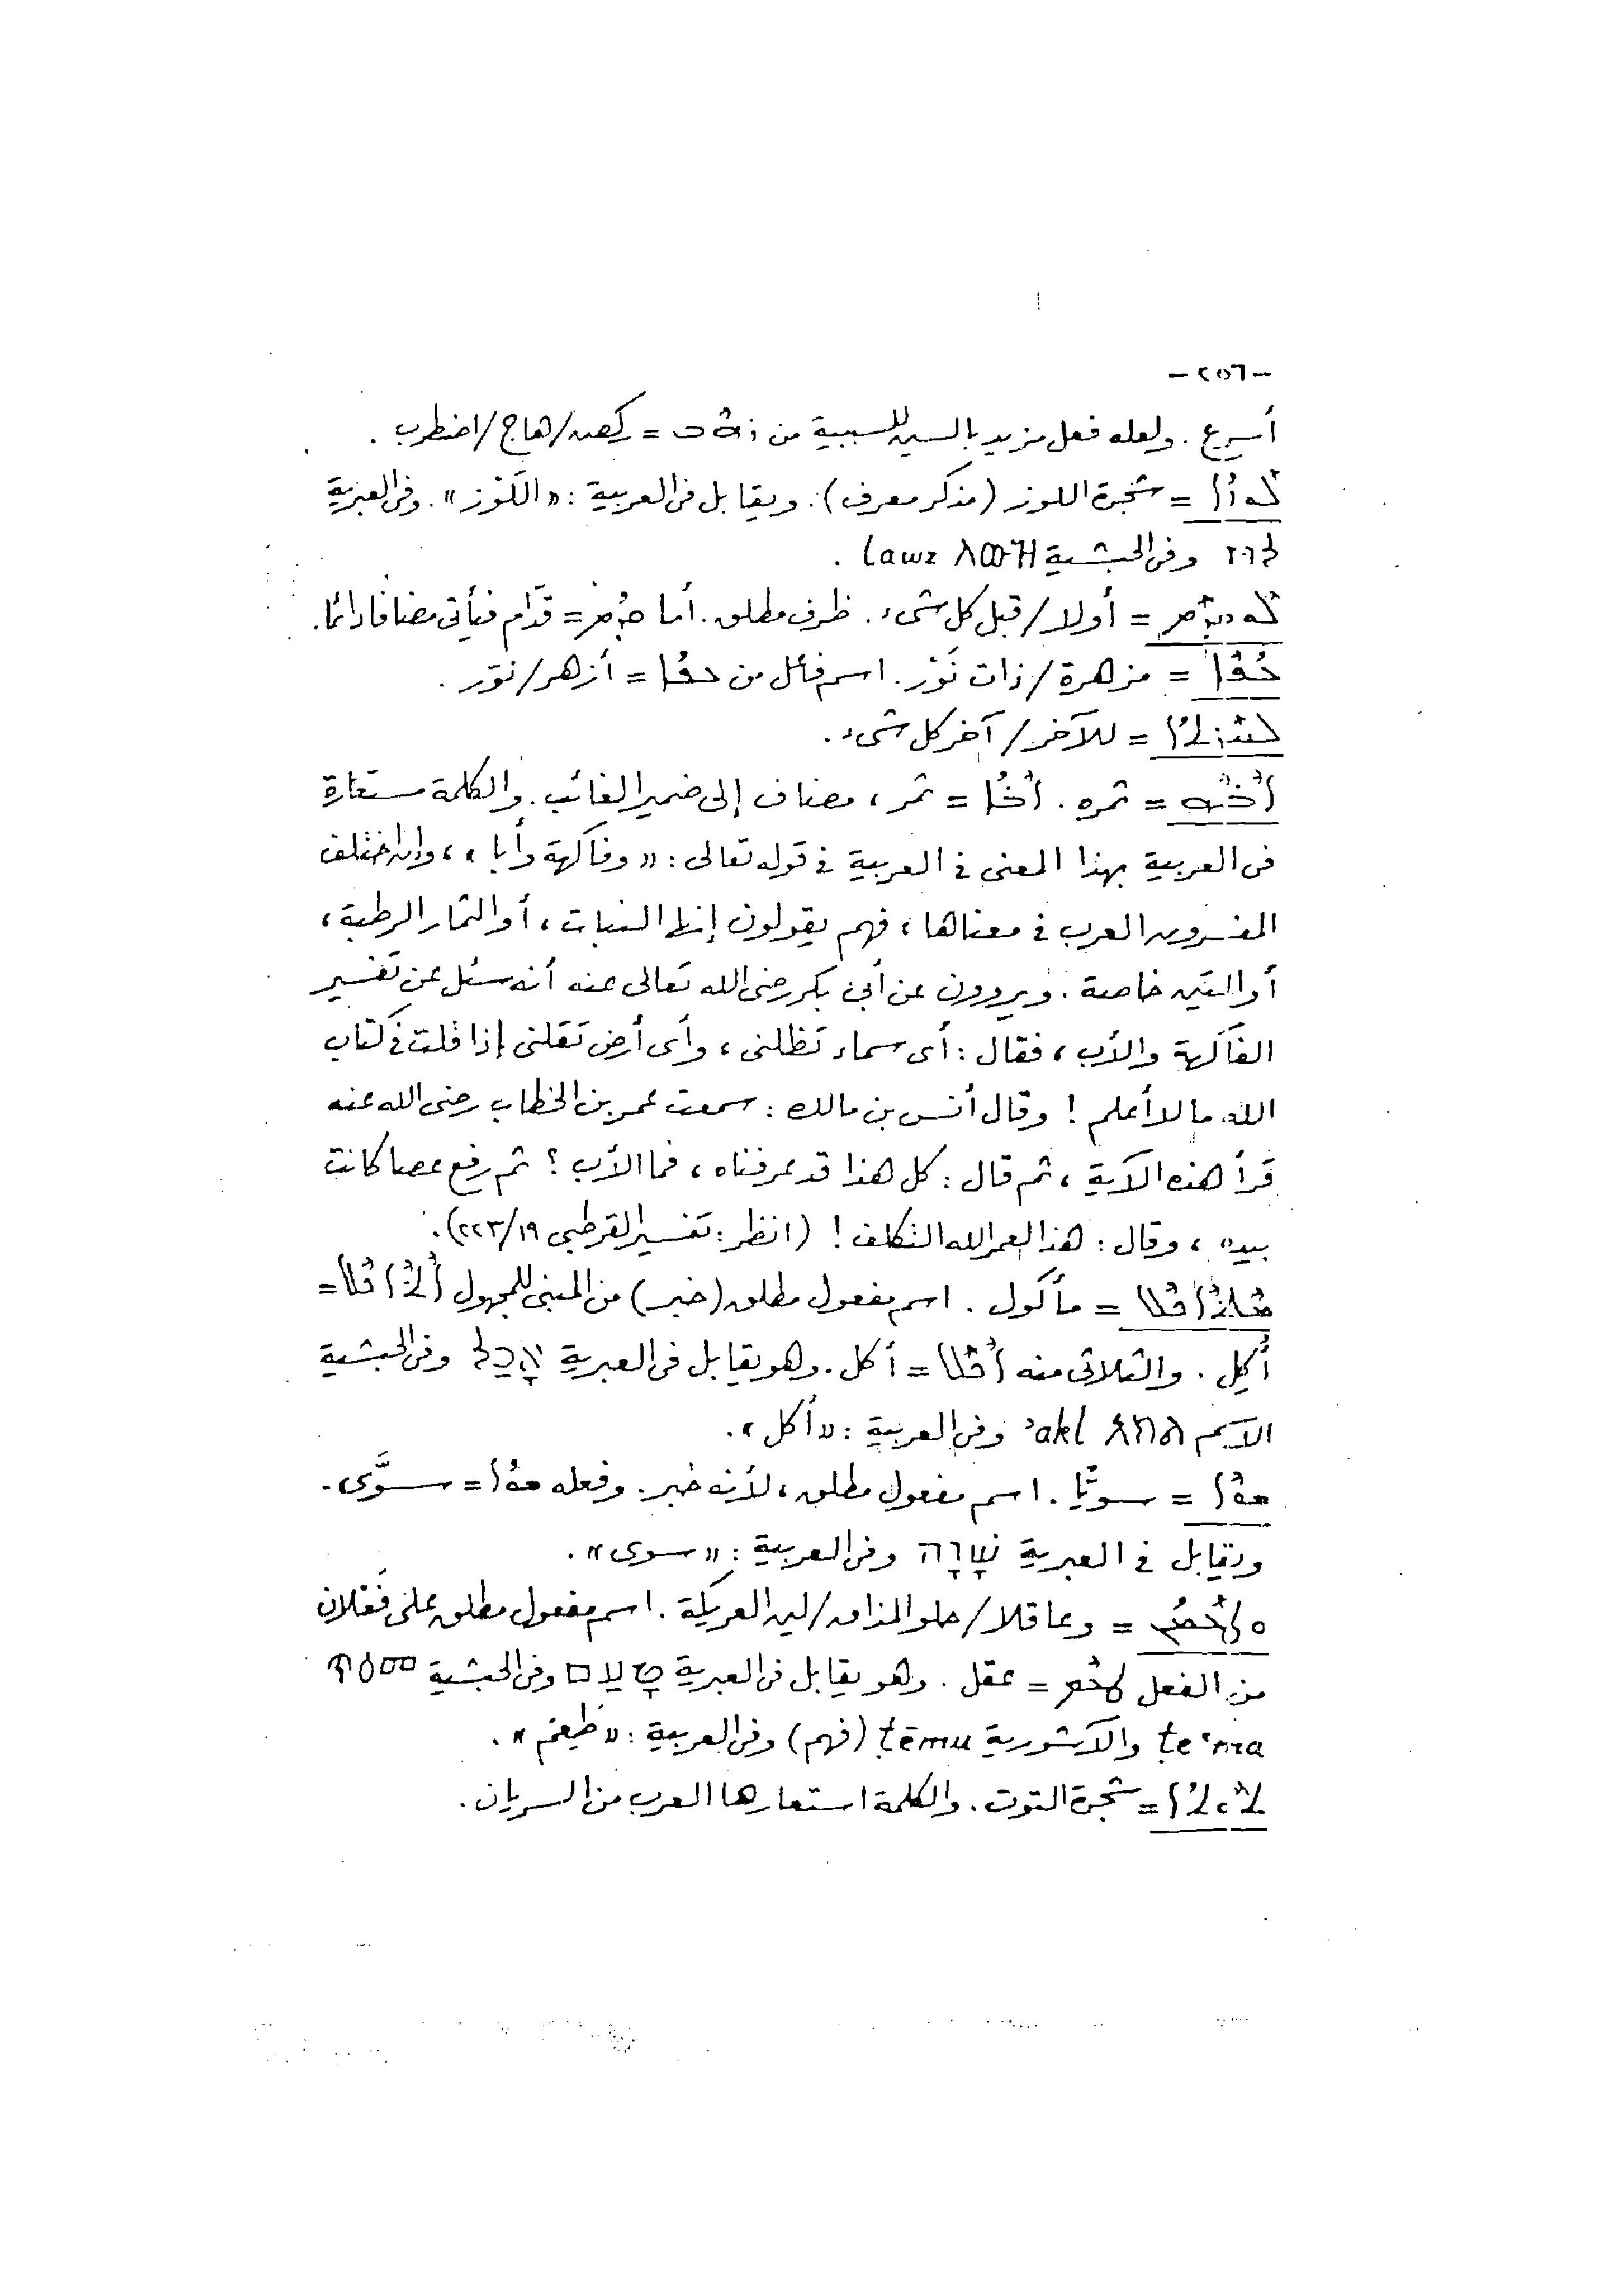 -٢٥٦-
أسرع. ولعله فعل مزيد بالسين للسببية من ܪܗܒ = ركض/هاج/اضطرب.
ܠܘܙܐ = شجرة اللوز (مذكر معرف). ويقابل فى العربية: «اللَّوْز». وفى العبرية
לוז وفى الحبشية ለውዝ lawz.
ܠܘܩܕܡ = أولا/قبل كل شىء. ظرف مطلق. أما ܩܕܡ = قدّام فيأتى مضافا دائما.
= مزهرة/ذات نَوْر. اسم فاعل من = أزهر/نوّر.
= للآخر/آخر كل شىء.
ܐܒܗ = ثمره. ܐܒܐ = ثمر، مضاف إلى ضمير الغائب. والكلمة مستعارة
فى العربية بهذا المعنى فى العربية فى قوله تعالى: «وفاكهة وأبا»، وإن اختلف
المفسرون العرب فى معناها، فهم يقولون إنها النبات، أو الثمار الرطبة،
أو التين خاصة. ويروون عن أبى بكر رضى الله تعالى عنه أنه سئل عن تفسير
الفاكهة والأب، فقال: أى سماء تظلنى، وأى أرض تقلنى إذا قلت فى كتاب
الله ما لا أعلم! وقال أنس بن مالك: سمعت عمر بن الخطاب رضى الله عنه
قرأ هذه الآية، ثم قال: كل هذا قد عرفناه، فما الأب؟ ثم رفع عصا كانت
بيده، وقال: هذا لعمر الله التكلف! (انظر: تفسير القرطبى ٢٢٣/١٩).
ܡܬܐܟܠ = مأكول. اسم مفعول مطلق (خبر) من المبنى للمجهول ܐܬܐܟܠ =
أُكِل. والثلاثى منه ܐܟܠ = أكل. وهو يقابل فى العبرية אָכַל وفى الحبشية
الاسم እክል ʾakl وفى العربية: «أكل».
ܫܘܐ = سويًّا. اسم مفعول مطلق، لأنه خبر. وفعله ܫܘܐ = سوَّى.
ويقابل فى العبرية שָׁוָה وفى العربية: «سوى».
ܘܛܥܝܡ = وعاقلا/حلو المذاق/لين العريكة. اسم مفعول مطلق على فَعْلان
من الفعل ܛܥܡ = عقل. وهو يقابل فى العبرية טָעַם وفى الحبشية ጥዕመ
ṭeʿma والآشورية ṭēmu (فهم) وفى العربية: «طَعِمَ».
ܬܘܬܐ = شجرة التوت. والكلمة استعارها العرب من السريان.